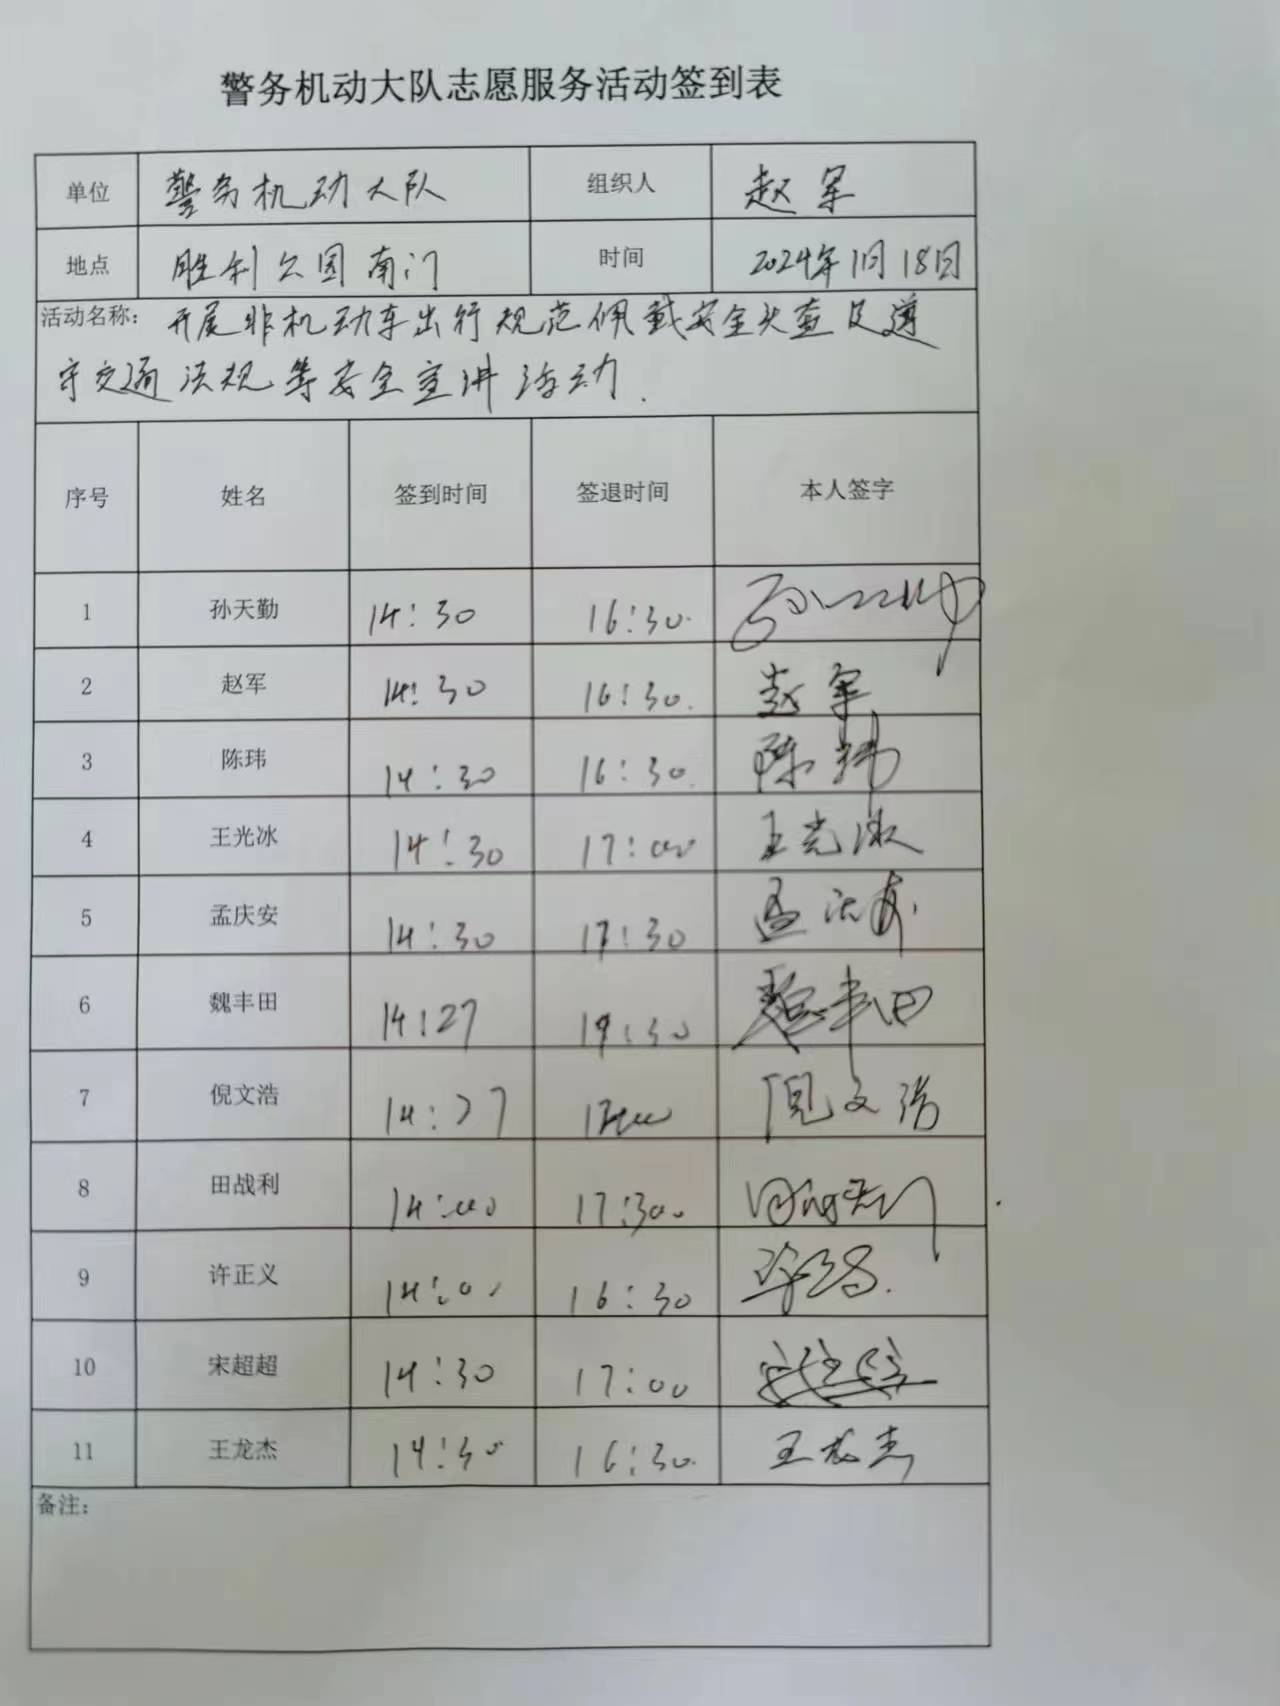 警务机动大队志愿服务活动签到表
单位 警务机动大队 组织人 赵军
地点 胜利公园南门 时间 2024年1月18日
活动名称: 开展非机动车出行规范佩戴安全头盔及遵
守交通法规等安全宣讲活动.
序号 姓名 签到时间 签退时间 本人签字
1 孙天勤 14:30 16:30
2 赵军 14:30 16:30 赵军
3 陈玮 14:30 16:30 陈玮
4 王光冰 14:30 17:00 王光冰
5 孟庆安 14:30 17:30 孟庆安
6 魏丰田 14:27 魏丰田
7 倪文浩 14:27 倪文浩
8 田战利 14:00 17:30
9 许正义 14:00 16:30
10 宋超超 14:30 17:00
11 王龙杰 14:30 16:30 王龙杰
备注: